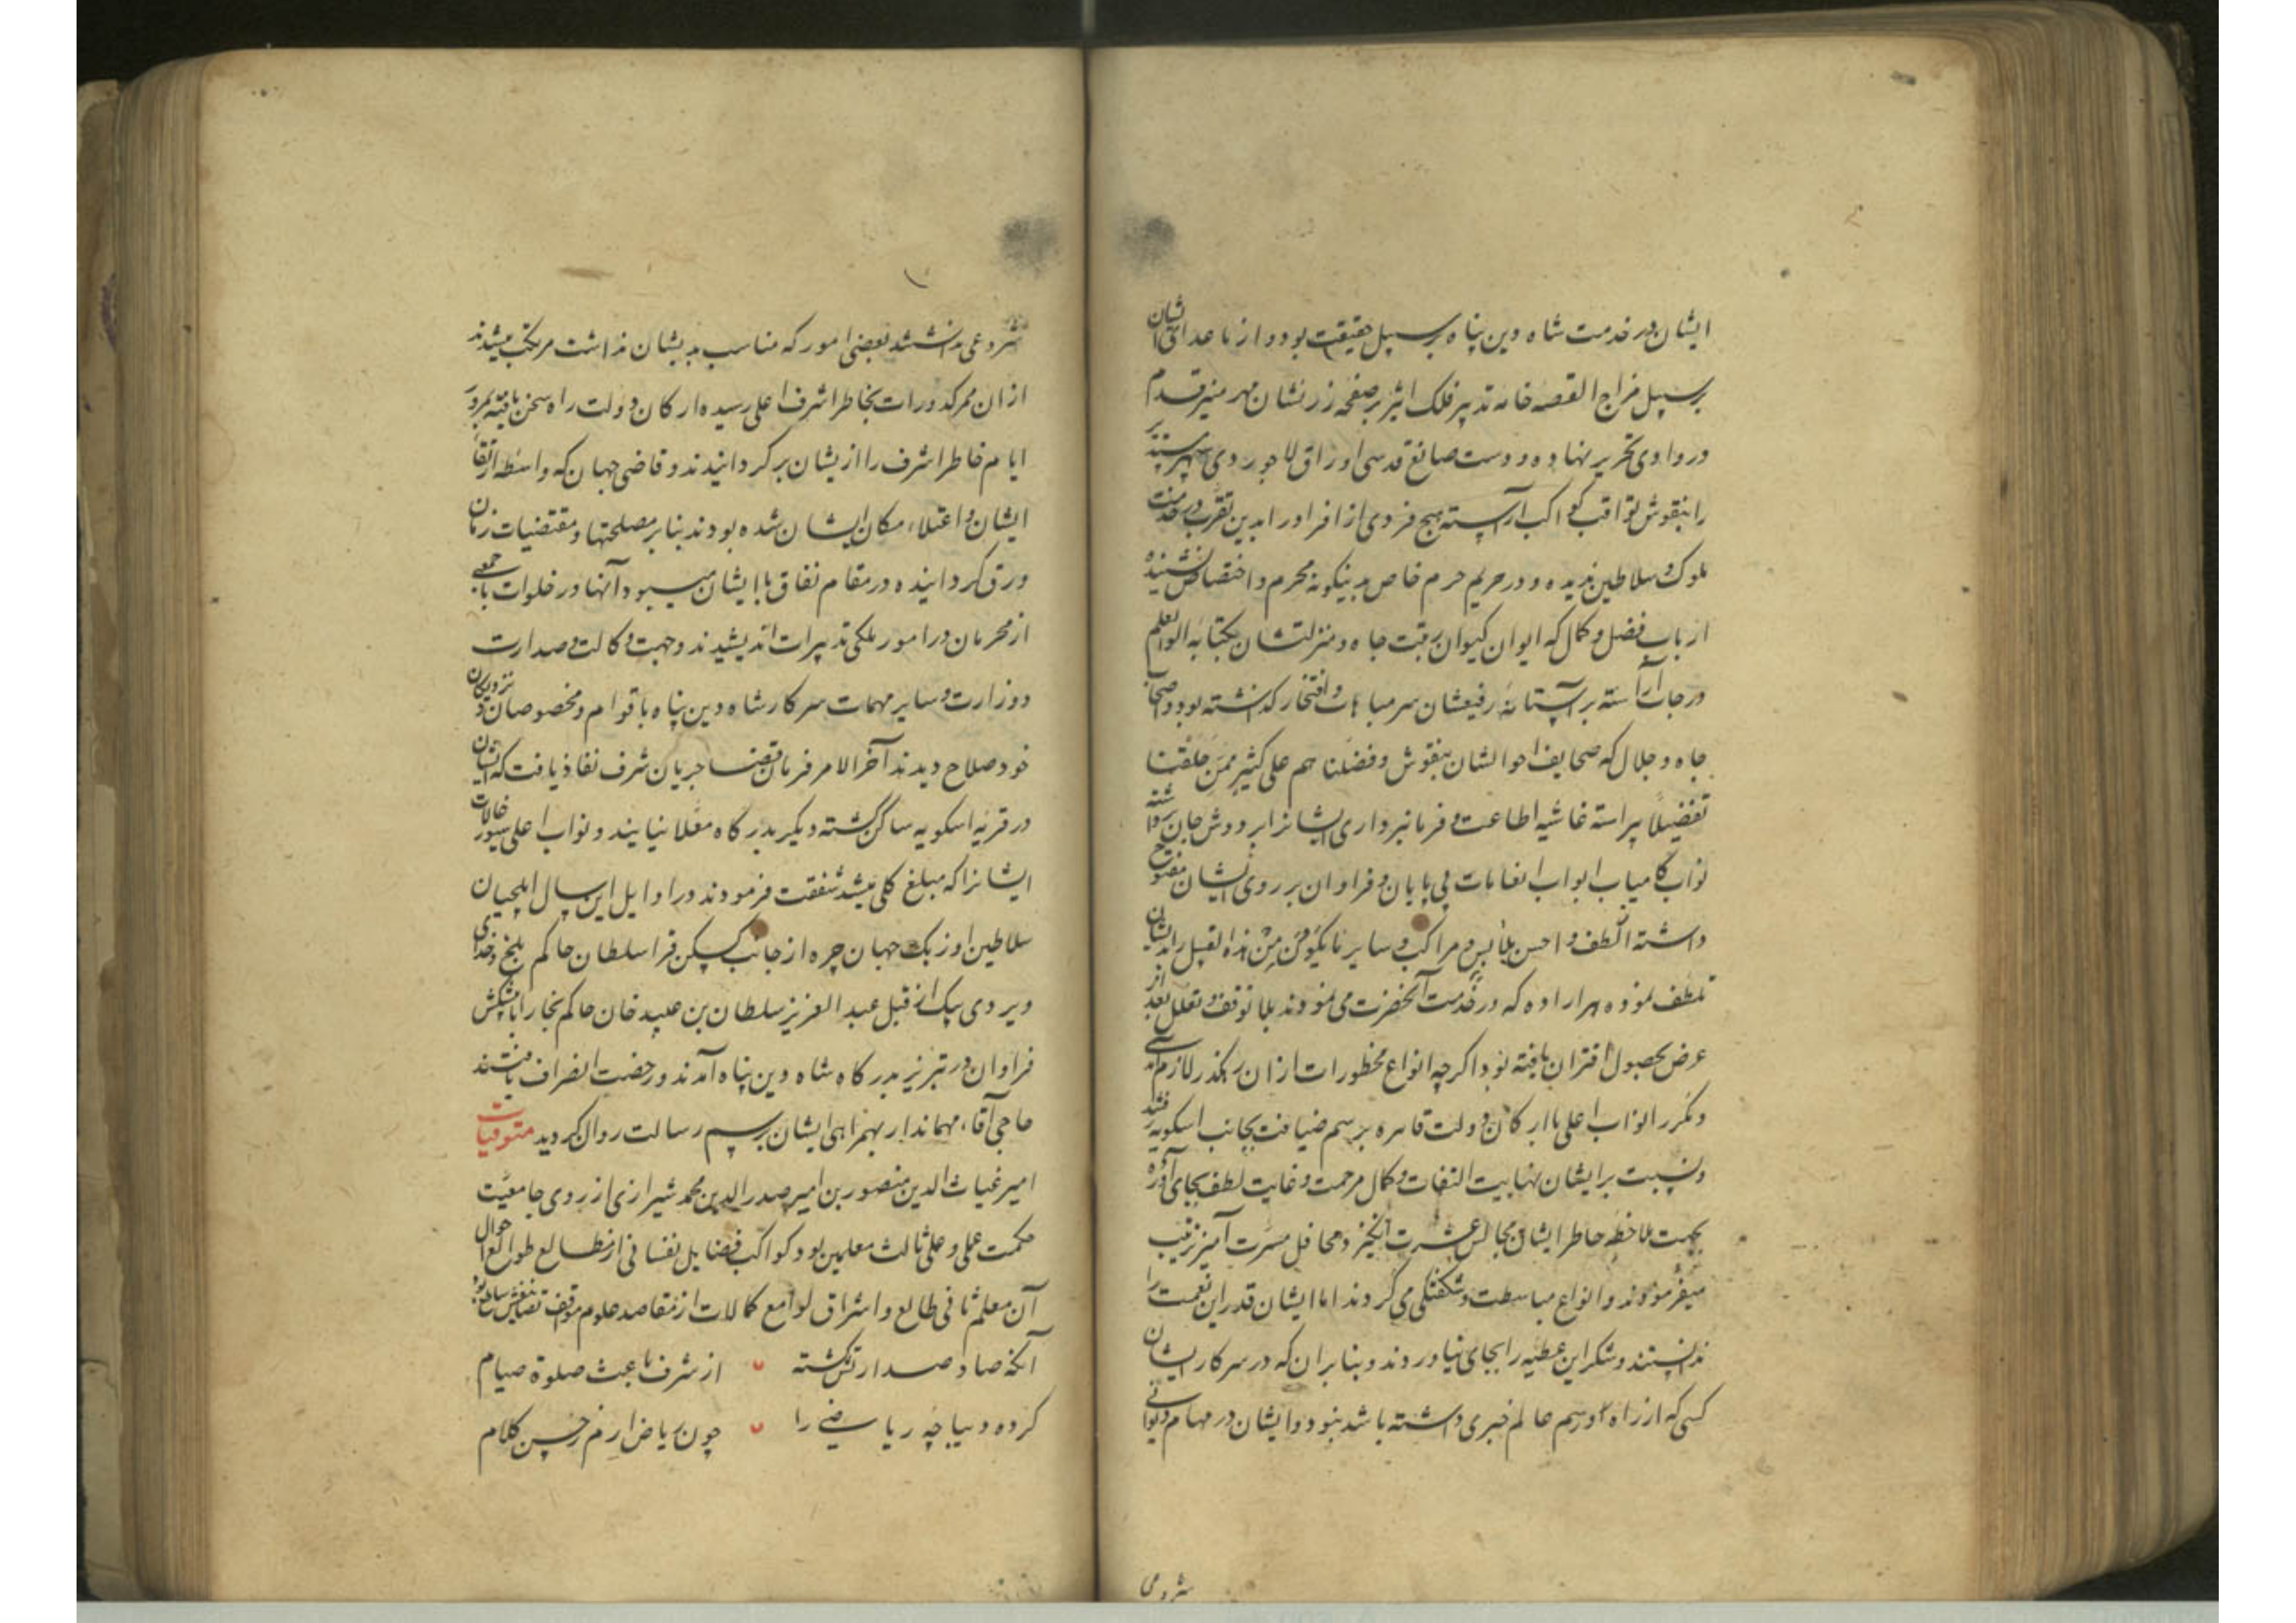 ایشان در خدمت شاه دین پناه بر سبیل حقیقت بود و از ماعدای ایشان
بر سبیل مزاج القصه خامه تدبیر فلک اثیر بر صفحه زرنشان مهر منیر قدم
در وادی تحریر نهاده و دست صانع قدسی اوراق لاجوردی سپهر مستدیر
را بنقوش ثواقب کواکب آراسته هیچ فردی از افراد را بدین تقرب در خدمت
ملوک و سلاطین ندیده و در حریم حرم خاص بدینگونه محرم و اختصاص نشنیده
ارباب فضل و کمال که ایوان کیوان رتبت جاه و منزلتشان بکتابه اوتوا العلم
درجات آراسته بر آستانه رفیعشان سر مباهات و افتخار گذاشته بود و اصحاب
جاه و جلال که صحایف احوالشان بنقوش و فضلنا هم علی کثیر ممن خلقنا
تفضیلا پیراسته غاشیه اطاعت و فرمانبرداری ایشانرا بر دوش جان
نواب کامیاب ابواب انعامات بی پایان و فراوان بر روی ایشان مفتوح
داشته الطف و احسن ملابس و مراکب و سایر مایکون من هذه القبیل را بدیشان
تلطف نموده هر اراده که در خدمت آنحضرت می نمودند بلا توقف و تعلل بعد از
عرض بحصول اقتران یافته بود اگرچه انواع محظورات از ان رهگذر لازم آمدی
و مکرر نواب اعلی با ارکان دولت قاهره برسم ضیافت بجانب اسکویه
و نسبت بر ایشان نهایت التفات و کمال مرحمت و غایت لطف بجای آورده
بجهت ملاحظه خاطر ایشان مجالس عشرت انگیز و محافل مسرت آمیز ترتیب
میفرمودند و انواع مباسطت و شکفتگی می کردند اما ایشان قدر این نعمت را
ندانستند و شکر این عطیه را بجای نیاوردند و بنا بران که در سرکار ایشان
کسی که از راه و رسم عالم خبری داشته باشد نبود و ایشان در مهام دیوانی
شروعی
شروعی نداشتند بعضی امور که مناسب بدیشان نداشت مرتکب میشدند
ازان ممر کدورات بخاطر اشرف اعلی رسیده ارکان دولت راه سخن یافته بمرور
ایام خاطر اشرف را از یشان برگردانیدند و قاضی جهان که واسطه ارتقاء
ایشان و اعتلاء مکان ایشان شده بودند بنا بر مصلحتها و مقتضیات زمان
ورق گردانیده در مقام نفاق با ایشان میبود و آنها در خلوات با جمعی
از محرمان در امور ملکی تدبیرات اندیشیدند و جهت وکالت و صدارت
و وزارت و سایر مهمات سرکار شاه دین پناه باقوام و مخصوصان و نزدیکان
خود صلاح دیدند آخر الامر فرمان قضا جریان شرف نفاذ یافت که ایشان
در قریه اسکویه ساکن گشته دیگر بدرگاه معلا نیایند و نواب اعلی سیورغالات
ایشانرا که مبلغ کلی میشد شفقت فرمودند در اوایل این سال ایلچیان
سلاطین اوزبک جهان چره از جانب کسکن قرا سلطان حاکم بلخ و خدای
ویردی بیک از قبل عبد العزیز سلطان بن عبید خان حاکم بخارا با پیشکش
فراوان در تبریز بدرگاه شاه دین پناه آمدند و رخصت انصراف یافتند
حاجی آقاء مهماندار بهمراهی ایشان برسم رسالت روان گردید متوفیات
امیر غیاث الدین منصور بن امیر صدر الدین محمد شیرازی از روی جامعیت
حکمت علمی و عملی ثالث معلمین بود و کواکب فضایل نفسانی از مطالع طوالع احوال
آن معلم ثانی طالع و اشراق لوامع کمالات از مقاصد علوم مواقف
آنکه صاد صدارتش گشته از شرف باعث صلوة صیام
کرده دیباچه ریاضی را چون ریاض ارم زحسن کلام